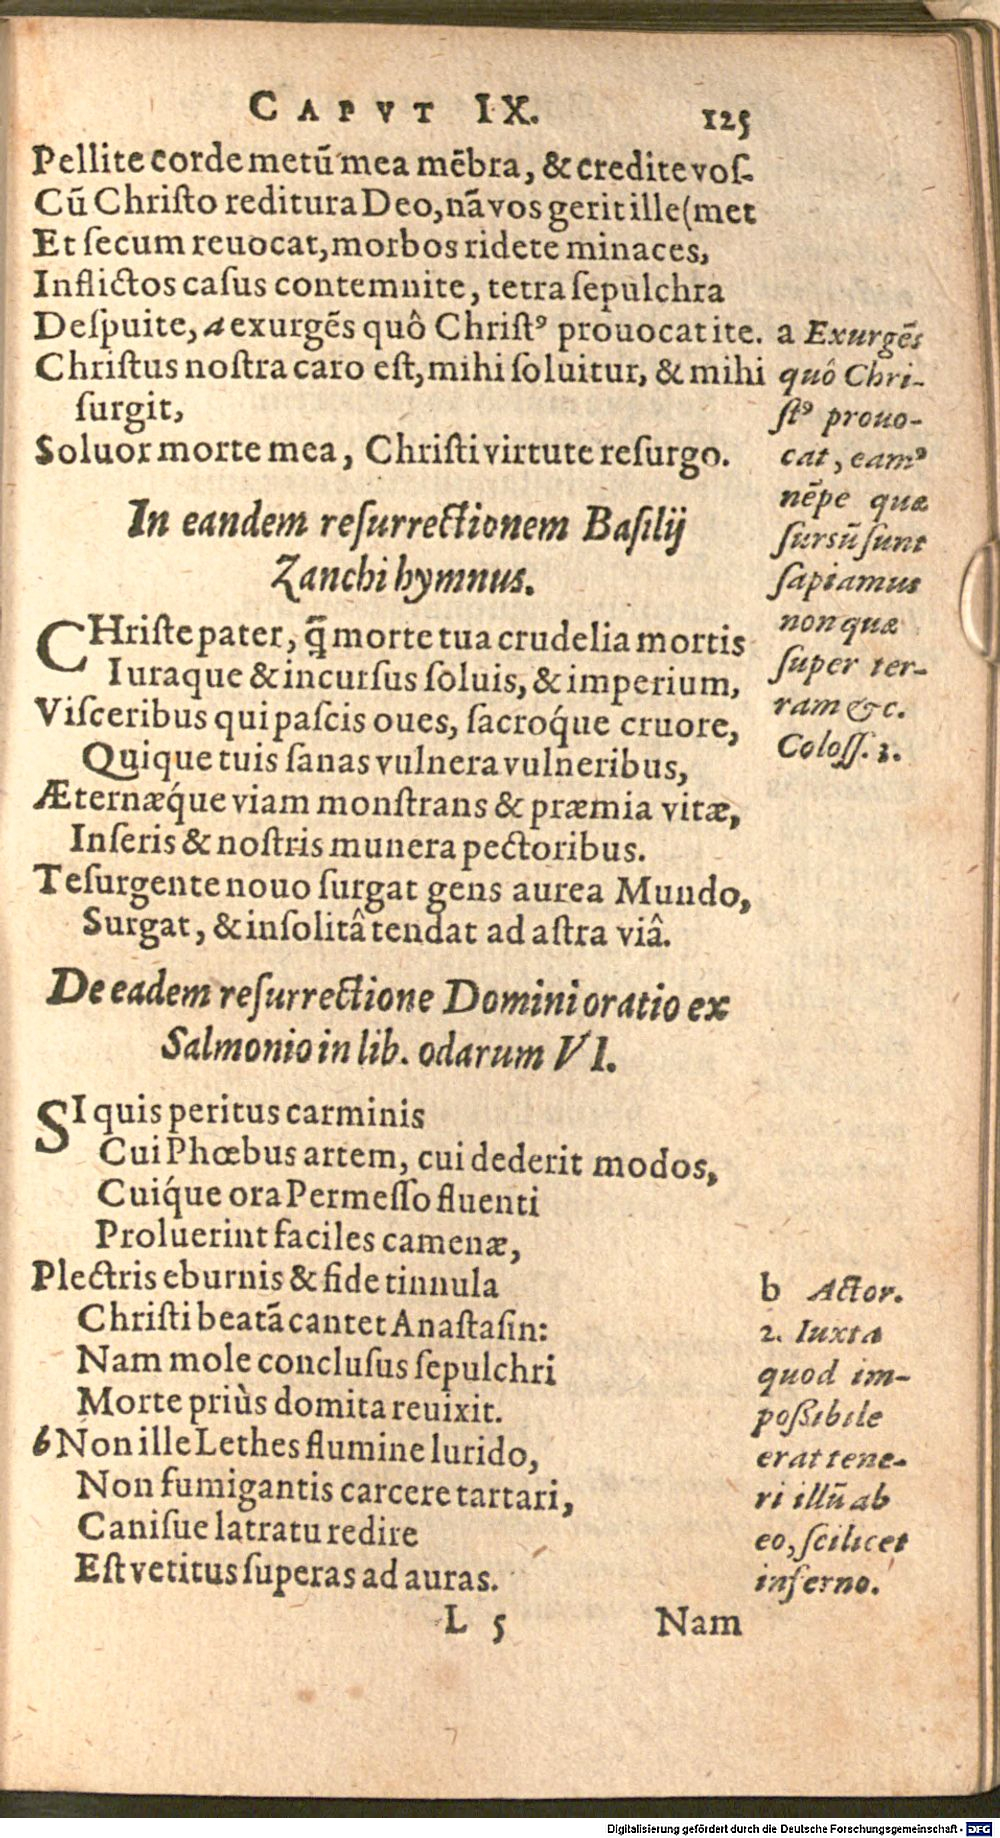 CAPVT IX. 125
Pellite corde metū mea mēbra, & credite voſ-
Cū Chriſto reditura Deo, nā vos gerit ille (met
Et ſecum reuocat, morbos ridete minaces,
Inflictos caſus contemnite, tetra ſepulchra
Deſpuite, a exurgēs quô Chriſtꝰ prouocat ite.
Chriſtus noſtra caro eſt, mihi ſoluitur, & mihi
ſurgit,
Soluor morte mea, Chriſti virtute reſurgo.
a Exurgēs
quô Chri-
ſtꝰ prouo-
cat, eamꝰ
nēpe quæ
ſursū ſunt
ſapiamus
non quæ
ſuper ter-
ram &c.
Coloſſ. 3.
In eandem reſurrectionem Baſilij
Zanchi hymnus.
CHriſte pater, q̄ morte tua crudelia mortis
Iuraque & incurſus ſoluis, & imperium,
Viſceribus qui paſcis oues, ſacroq́ue cruore,
Quique tuis ſanas vulnera vulneribus,
Æternæq́ue viam monſtrans & præmia vitæ,
Inſeris & noſtris munera pectoribus.
Te ſurgente nouo ſurgat gens aurea Mundo,
Surgat, & inſolitâ tendat ad aſtra viâ.
De eadem reſurrectione Domini oratio ex
Salmonio in lib. odarum VI.
SI quis peritus carminis
Cui Phœbus artem, cui dederit modos,
Cuiq́ue ora Permeſſo fluenti
Proluerint faciles camenæ,
Plectris eburnis & fide tinnula
Chriſti beatā cantet Anaſtaſin:
Nam mole concluſus ſepulchri
Morte priùs domita reuixit.
b Non ille Lethes flumine lurido,
Non fumigantis carcere tartari,
Caniſue latratu redire
Eſt vetitus ſuperas ad auras.
b Actor.
2. Iuxta
quod im-
poßibile
erat tene-
ri illū ab
eo, ſcilicet
inferno.
L 5 Nam
Digitalisierung gefördert durch die Deutsche Forschungsgemeinschaft - DFG